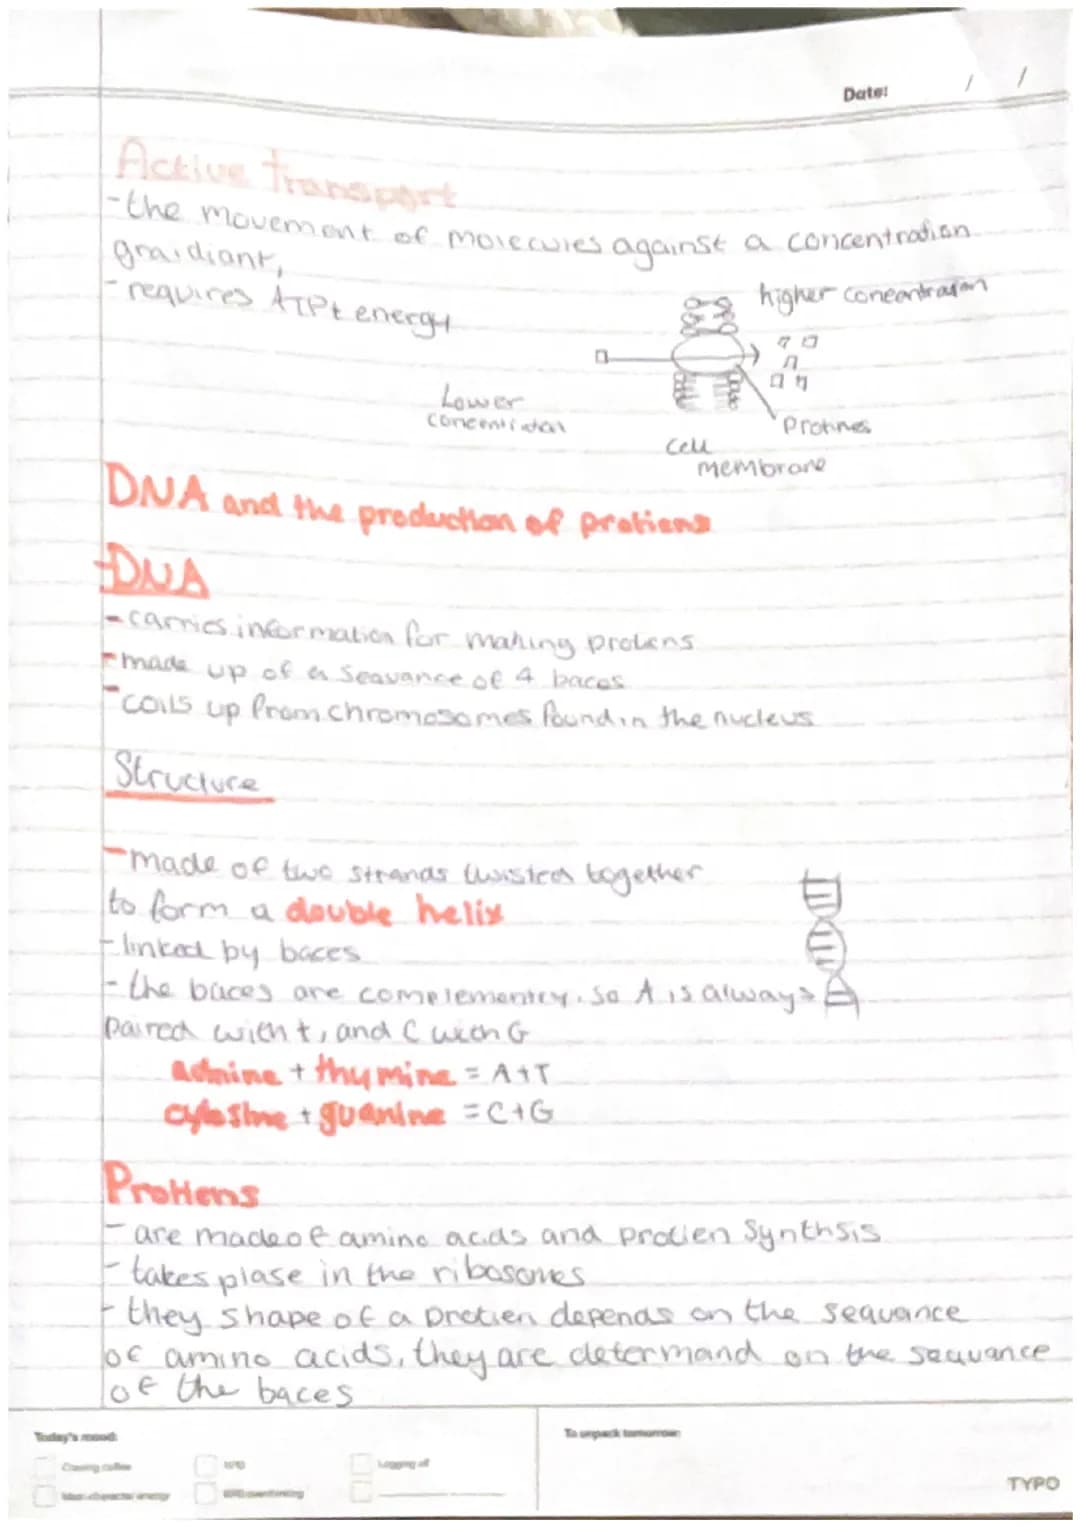 Date: / /
Active transport
-the movement of molecules against a concentration
graidiant,
-requires ATP+energy
higher concentration
Lower
concentration
Protines
Cell
membrane
DNA and the production of protiens
-DNA
-carries information for making protiens
-made up of a seavance of 4 baces
-coils up from chromosomes found in the nucleus
Structure
-made of two strands twisted together
to form a double helix
-linked by baces
-the baces are complementry. so A is always
paired with t, and C with G
adnine + thymine = A+T
cytosine + guanine = C+G
Protiens
- are made of amino acids and protien Synthsis
- takes plase in the ribosomes
- they shape of a protien depends on the seavance
of amino acids, they are determand on the seavance
of the baces
Today's mood:
Craving coffee
Logging off
Main character energy
To unpack tomorrow:
TYPO